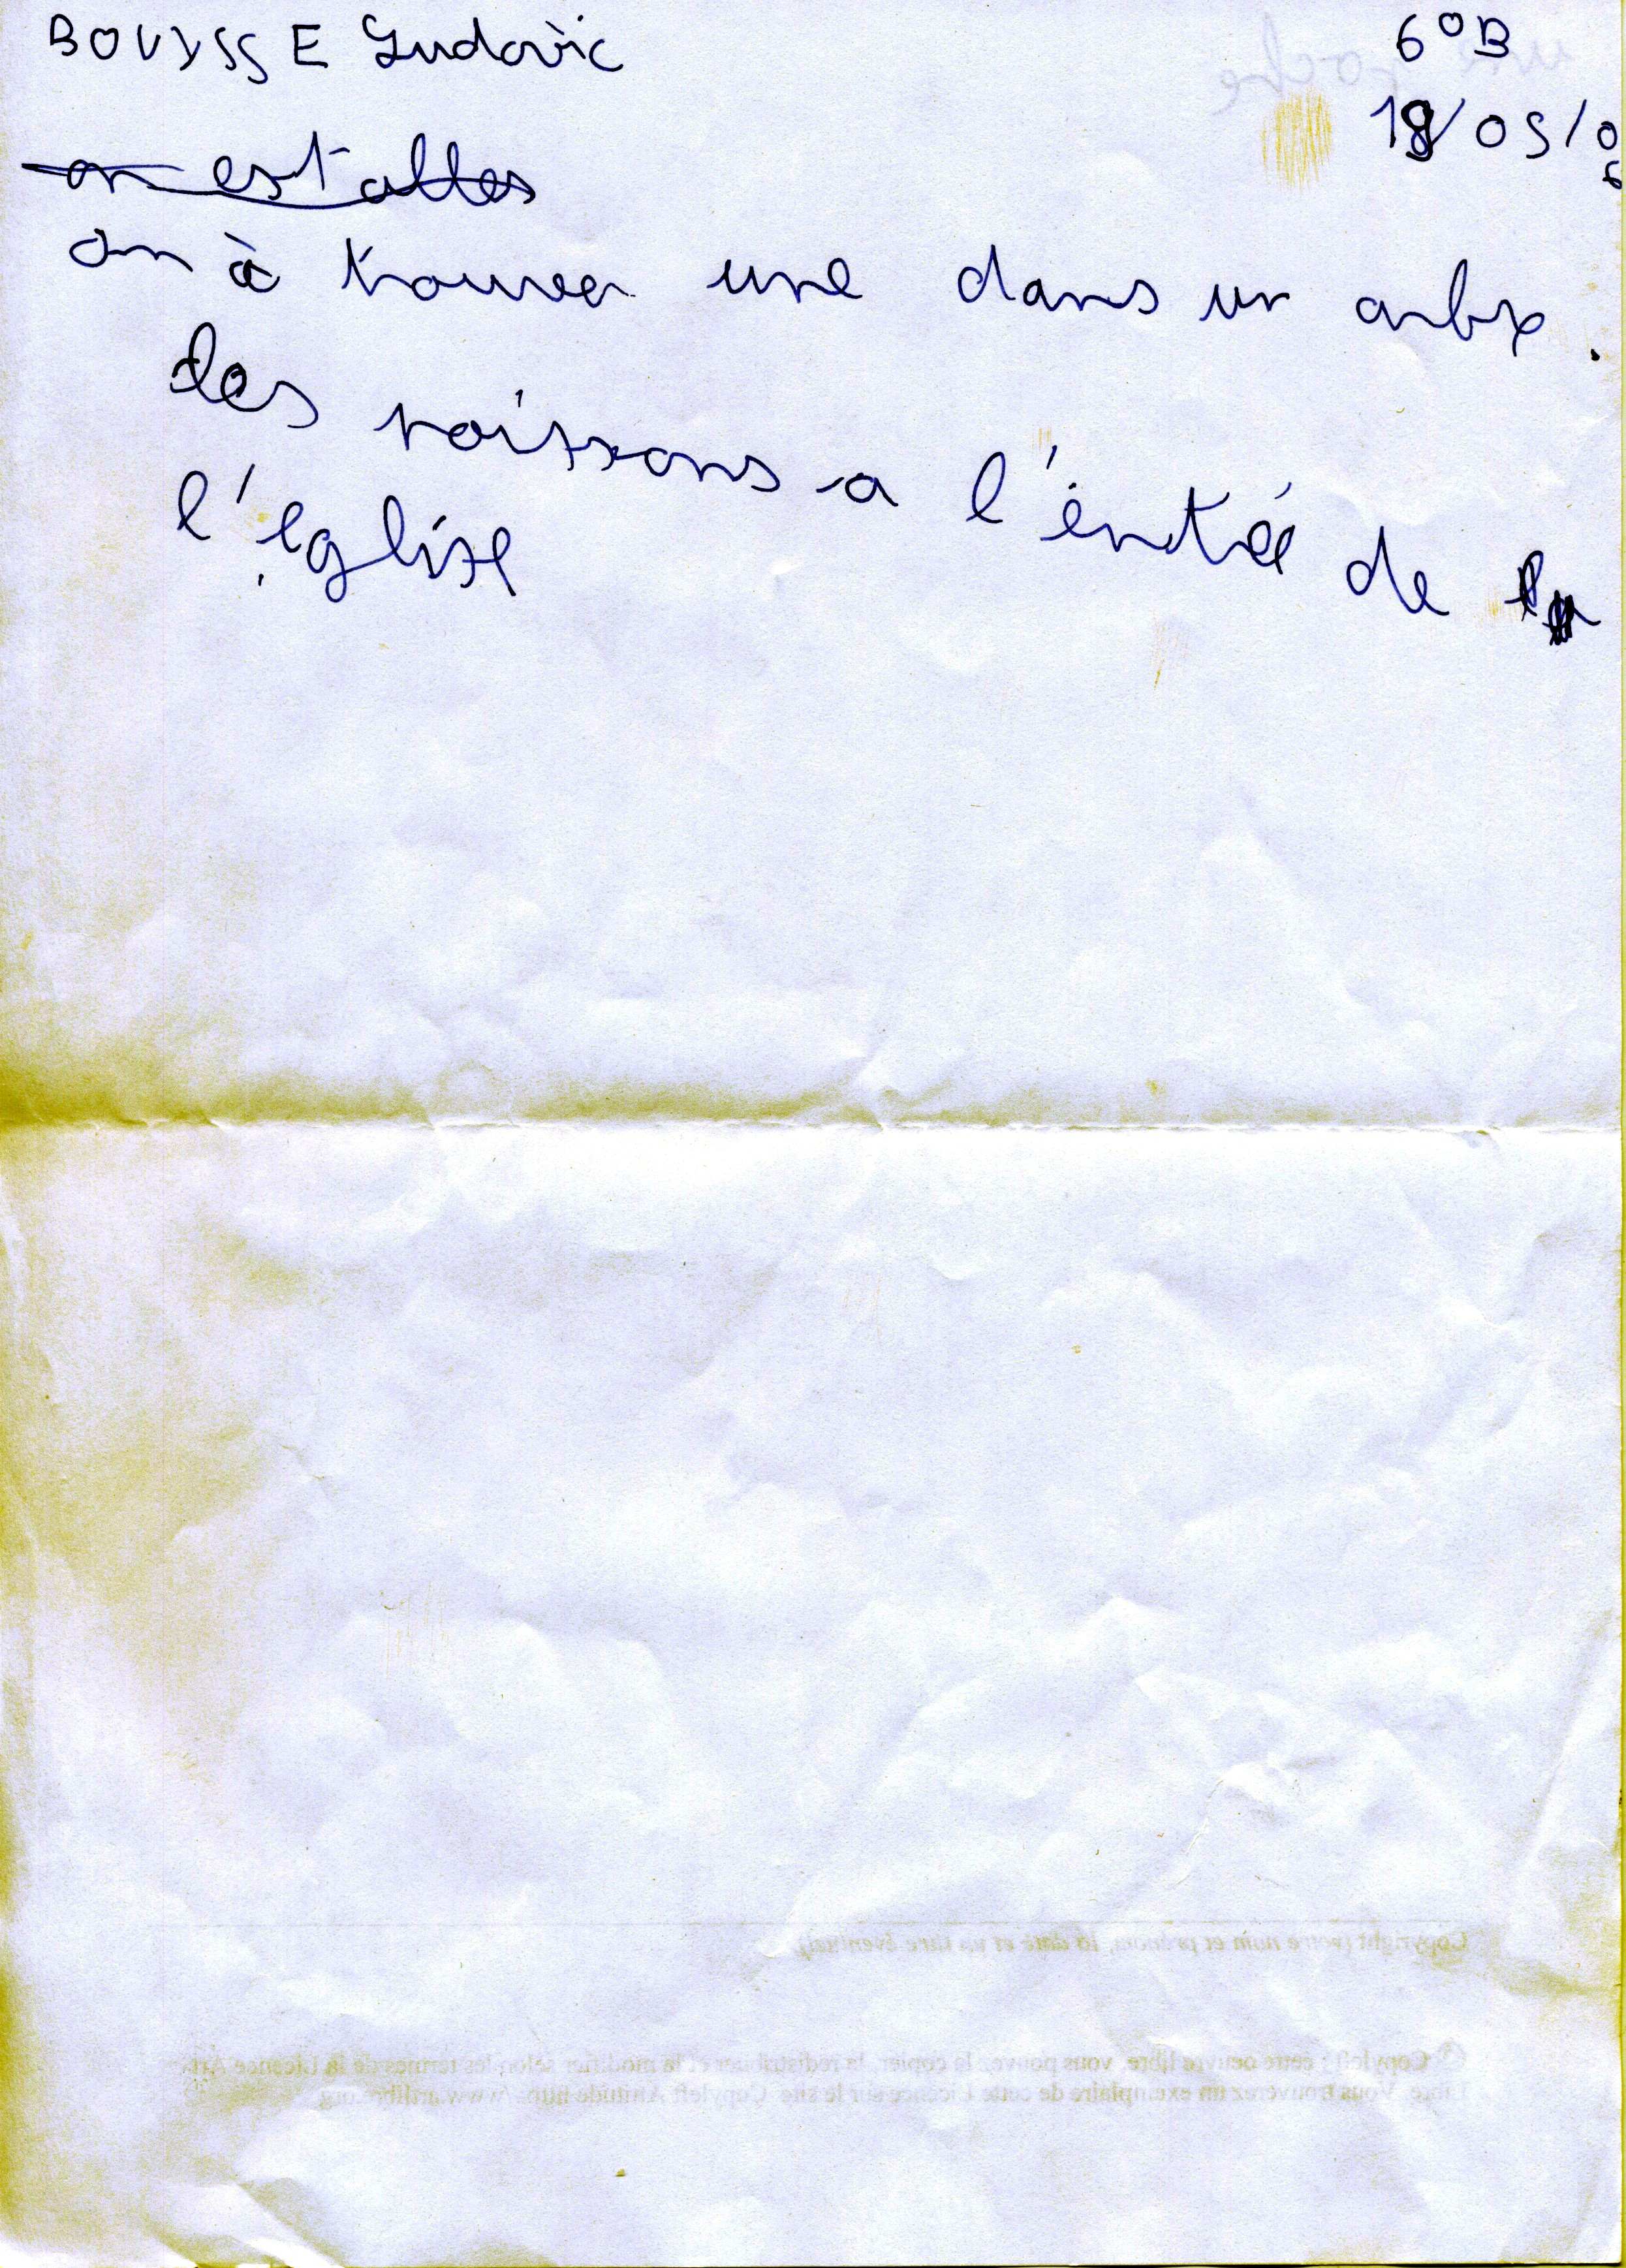 BOUYSSE Ludovic 6°B
18/05/06
on est alles
on à trouver une dans un arbre.
des poissons a l'éntrée de
l'église
une poche
Copyright (votre nom et prénom, la date et un titre éventuel)
Copyleft : cette oeuvre libre, vous pouvez la copier, la redistribuer et la modifier selon les termes de la Licence Art
Libre. Vous trouverez un exemplaire de cette Licence sur le site Copyleft Attitude http://www.artlibre.org